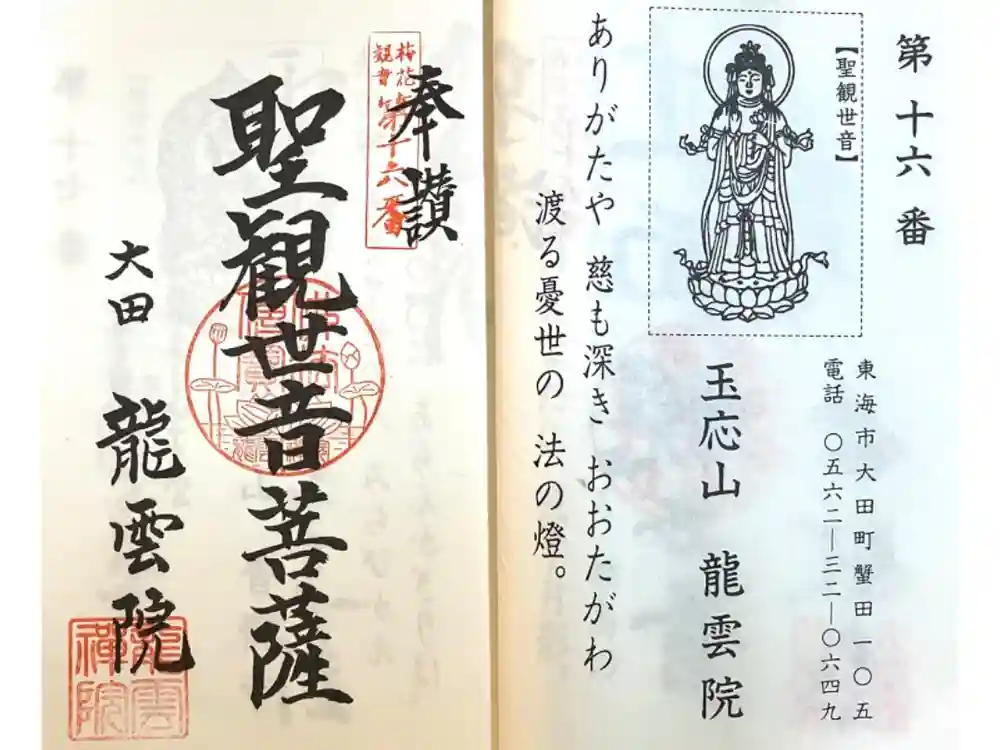 第十六番
【聖観世音】
東海市大田町蟹田一〇五
電話 〇五六二―三二―〇六四九
玉応山 龍雲院
ありがたや 慈も深き おおたがわ
渡る憂世の 法の燈。
奉讃
梅花
観音
第十六番
聖観世音菩薩
大田 龍雲院
龍雲
禅院